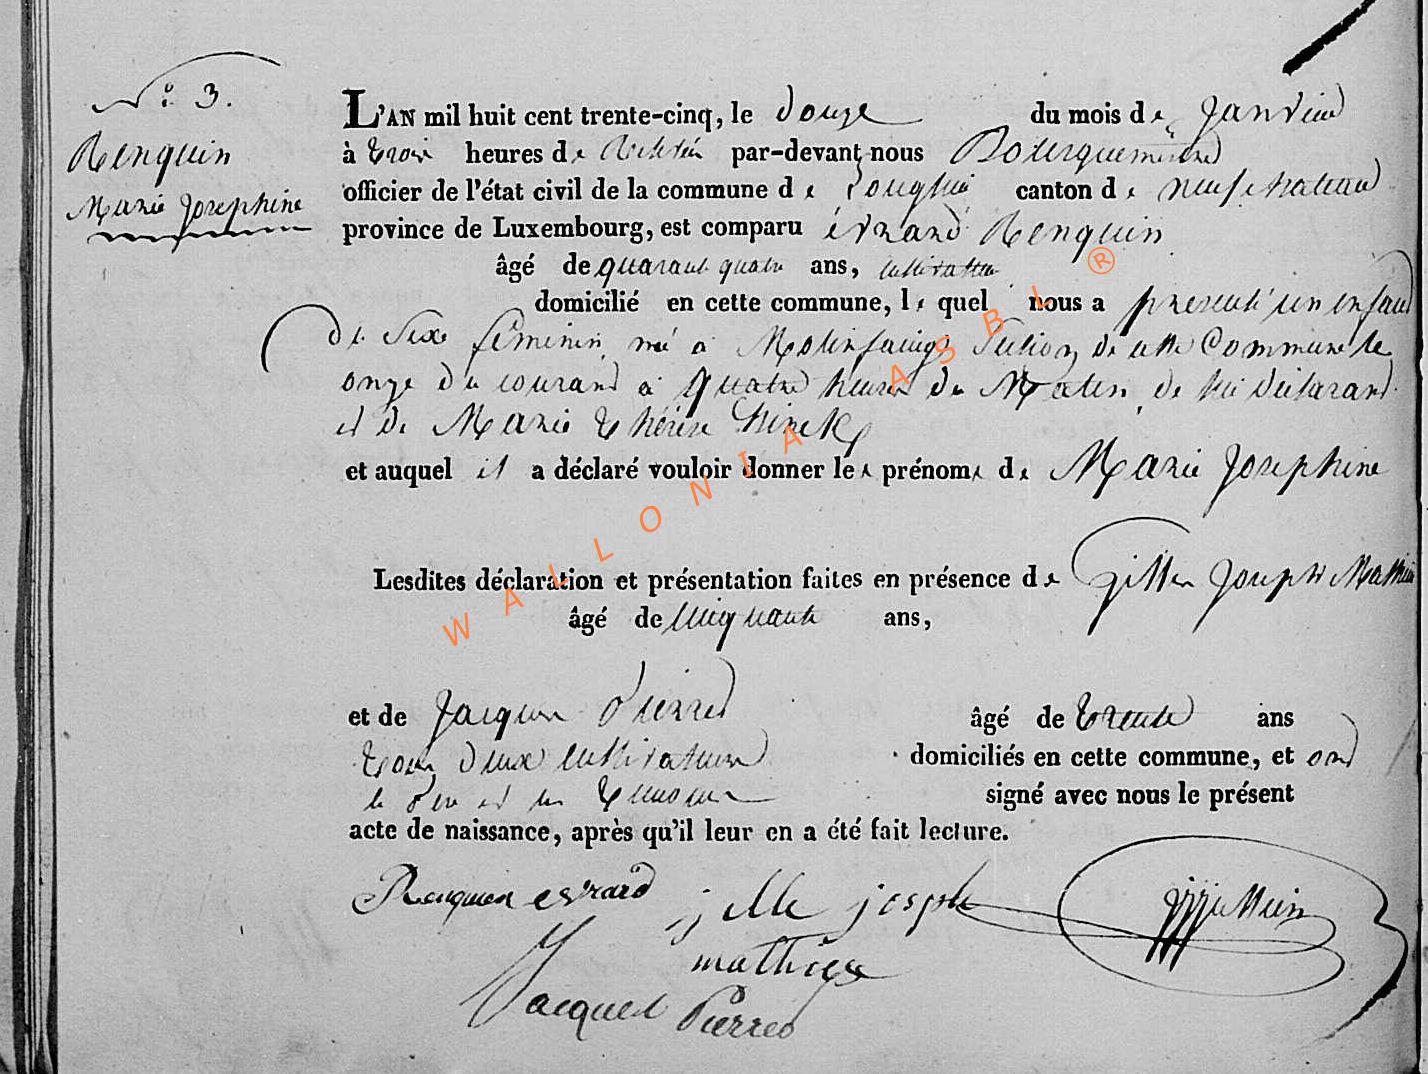 N.º 3.
Renquin
Marie Josephine
L'AN mil huit cent trente-cinq, le douze du mois de Janvier
à trois heures de Relevée par-devant nous Bourguemaitre
officier de l'état civil de la commune de Longlier canton de neufchateau
province de Luxembourg, est comparu évrard Renquin
âgé de quarante quatre ans, cultivateur
domicilié en cette commune, lequel nous a presenté un enfant
de sexe féminin, né à Molinfaing Section de cette Commune le
onze du courant à quatre heures du Matin, de lui déclarant
et de Marie thérèse
et auquel il a déclaré vouloir donner les prénoms de Marie Josephine
Lesdites déclaration et présentation faites en présence de Joseph Mathieu
âgé de Cinquante ans,
et de Jacques Pierred âgé de trente ans
tous deux cultivateurs domiciliés en cette commune, et ont
le Père et les temoins signé avec nous le présent
acte de naissance, après qu'il leur en a été fait lecture.
Renquin evrard
joseph
mathieu
Jacques Pierred
WALLONIA ASBL ®